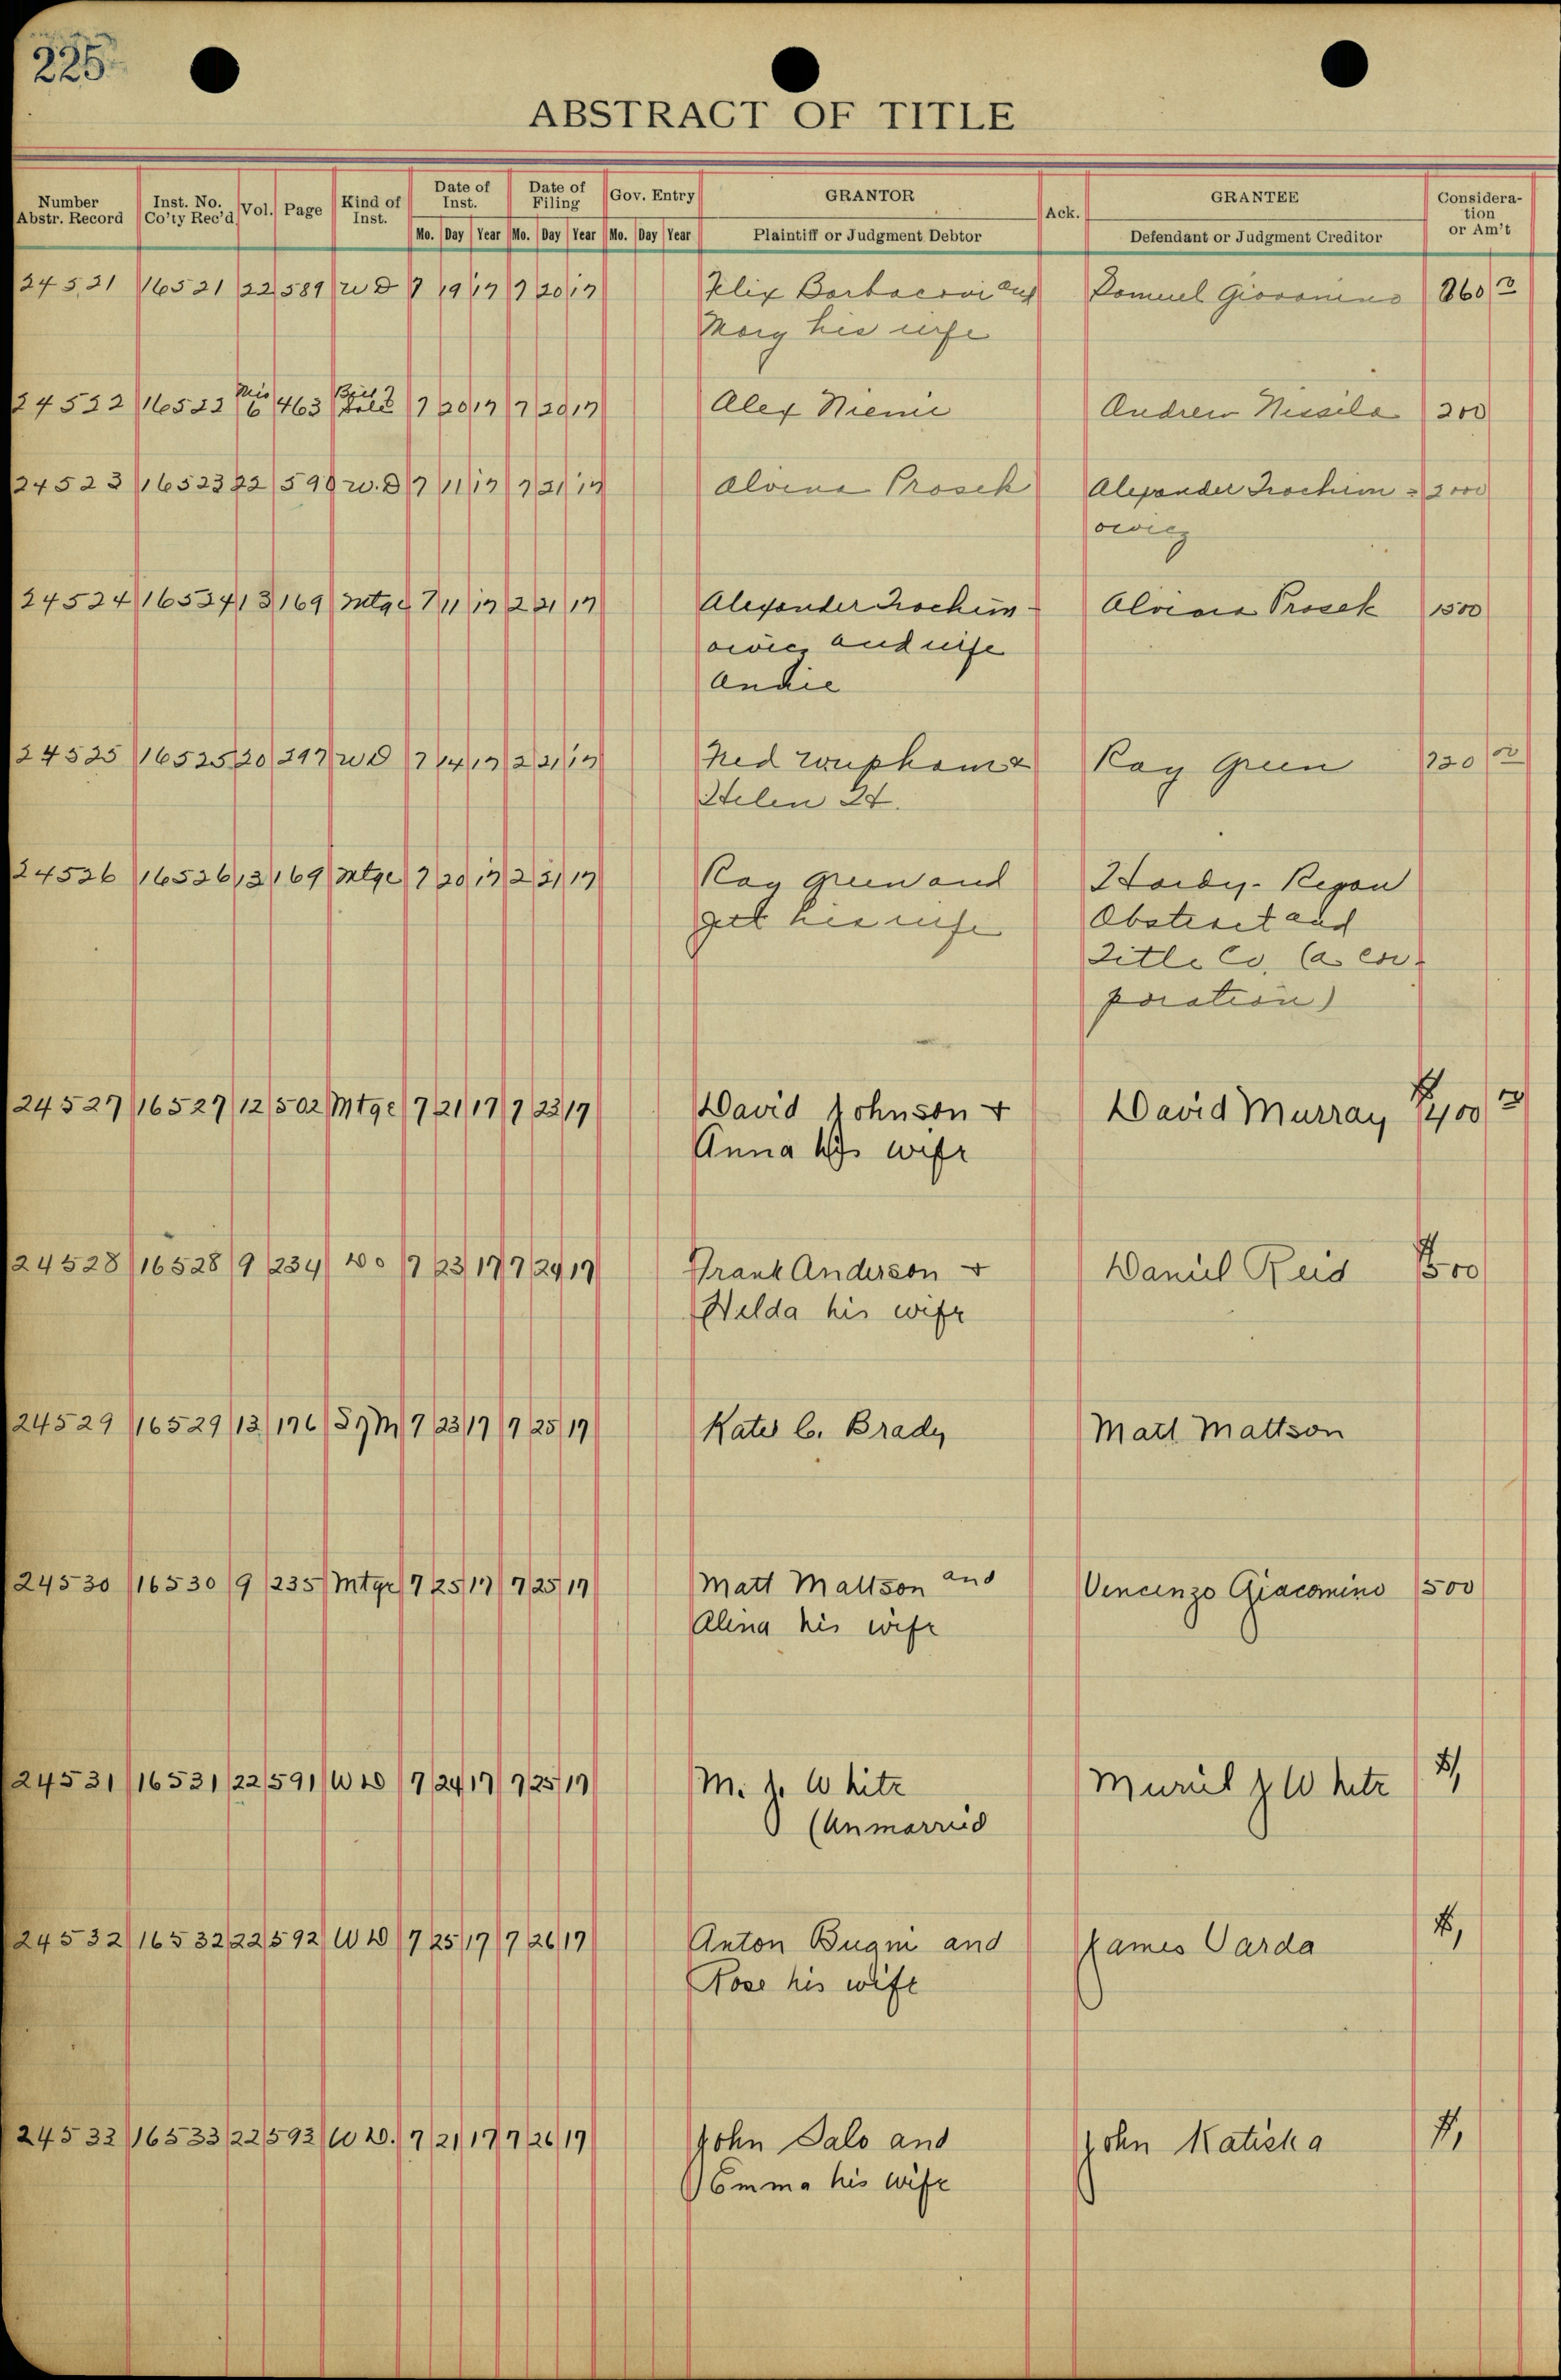 225
ABSTRACT OF TITLE
Number Abstr. Record Inst. No. Co'ty Rec'd Vol. Page Kind of Inst. Date of Inst. Date of Filing Gov. Entry GRANTOR Ack. GRANTEE Considera-tion or Am't
Mo. Day Year Mo. Day Year Mo. Day Year Plaintiff or Judgment Debtor Defendant or Judgment Creditor
24521 16521 22 589 W D 7 19 17 7 20 17 Felix Barbacovi and Giovanino 860
Mary his wife
24522 16522 Mis 6 463 Bill Sale 7 20 17 7 20 17 Alex Niemi Andrew Nissila 200
24523 16523 22 590 W. D 7 11 17 7 21 17 Alvina Prosek Alexander Trochim= 2000
owicz
24524 16524 13 169 Mtge 7 11 17 7 21 17 Alexander Trochim- Alvina Prosek 1500
owicz and wife
Annie
24525 16525 20 297 W D 7 14 17 7 21 17 Ned W upham & Ray Green
Helen H.
24526 16526 13 169 Mtge 7 20 17 7 21 17 Ray Green and Regan
his wife Abstract and
Title Co, (a cor-
poration)
24527 16527 12 502 Mtge 7 21 17 7 23 17 David Johnson + David Murray $400
Anna his wife
24528 16528 9 234 Do 7 23 17 7 24 17 Frank Anderson + Daniel Reid
Hilda his wife
24529 16529 13 176 7 23 17 7 25 17 Kate C. Brady Matt Mattson
24530 16530 9 235 Mtge 7 25 17 7 25 17 Matt Mattson and Vincenzo Giacomino 500
Alina his wife
24531 16531 22 591 W D 7 24 17 7 25 17 M. J. White Muriel J White $1
(Unmarried
24532 16532 22 592 W D 7 25 17 7 26 17 Anton Bugni and James Varda $1
Rose his wife
24533 16533 22 593 W D. 7 21 17 7 26 17 John Salo and John Katiska $1
Emma his wife